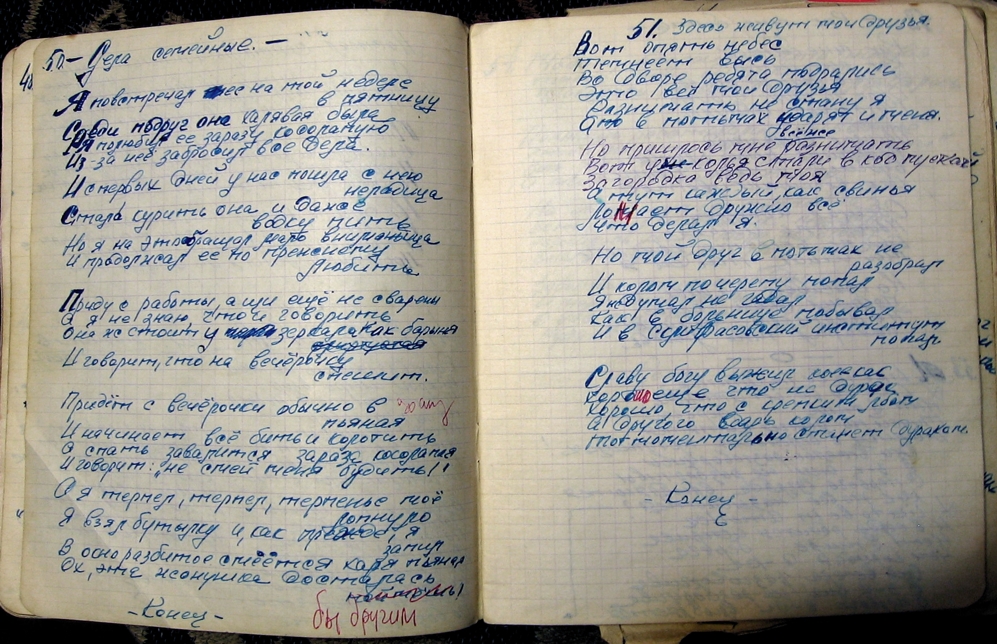 50.– Дела семейные. –
Я повстречал на той неделе
в пятницу
Среди подруг она халявая была
Я полюбил ее заразу косолапую
Из-за неё забросил все дела.
И с первых дней у нас пошла с нею
нерадица
Стала курить она и даже
водку пить
Но я на это обращал мало
И продолжал ее по прежнему
любить
Приду с работы, а щи ещё не сварены
а я не знаю, что и говорить
Она же стоит у зеркала как барыня
И говорит, что на вечёрочку
спешит.
Придёт с вечёрочки обычно в
пьяная
И начинает всё бить и колотить
А спать завалится зараза косолапая
И говорит: „не смей меня будить!"
А я терпел, терпел, терпенье моё
лопнуло
Я взял бутылку и, как прежде, я
запил
В окно разбитое смеётся харя пьяная
Ох, эта жёнушка досталась
бы другим
– Конец –
51. Здесь живут мои друзья.
Вот опять небес
Темнеет высь
Во дворе ребята подрались
Это всё мои друзья
Разнимать не стану я
А то в потьмах ударят и меня.
всё же
Но пришлось мне разнимать
Вот уж колья стали в ход пускать
Загородка ведь моя
А тут каждый, как свинья
Ломает дружно всё
Что делал я.
Но мой друг в потьмах не
разобрал
И колом по черепу попал
Я не думал не гадал
Как в больницу побывал
И в Склифасовский институт
попал
Славу богу выжил кое как
Хорошо еще что не дурак
Хорошо, что с крепким лбом
А другого вдарь колом
Тот моментально станет дураком
– Конец –